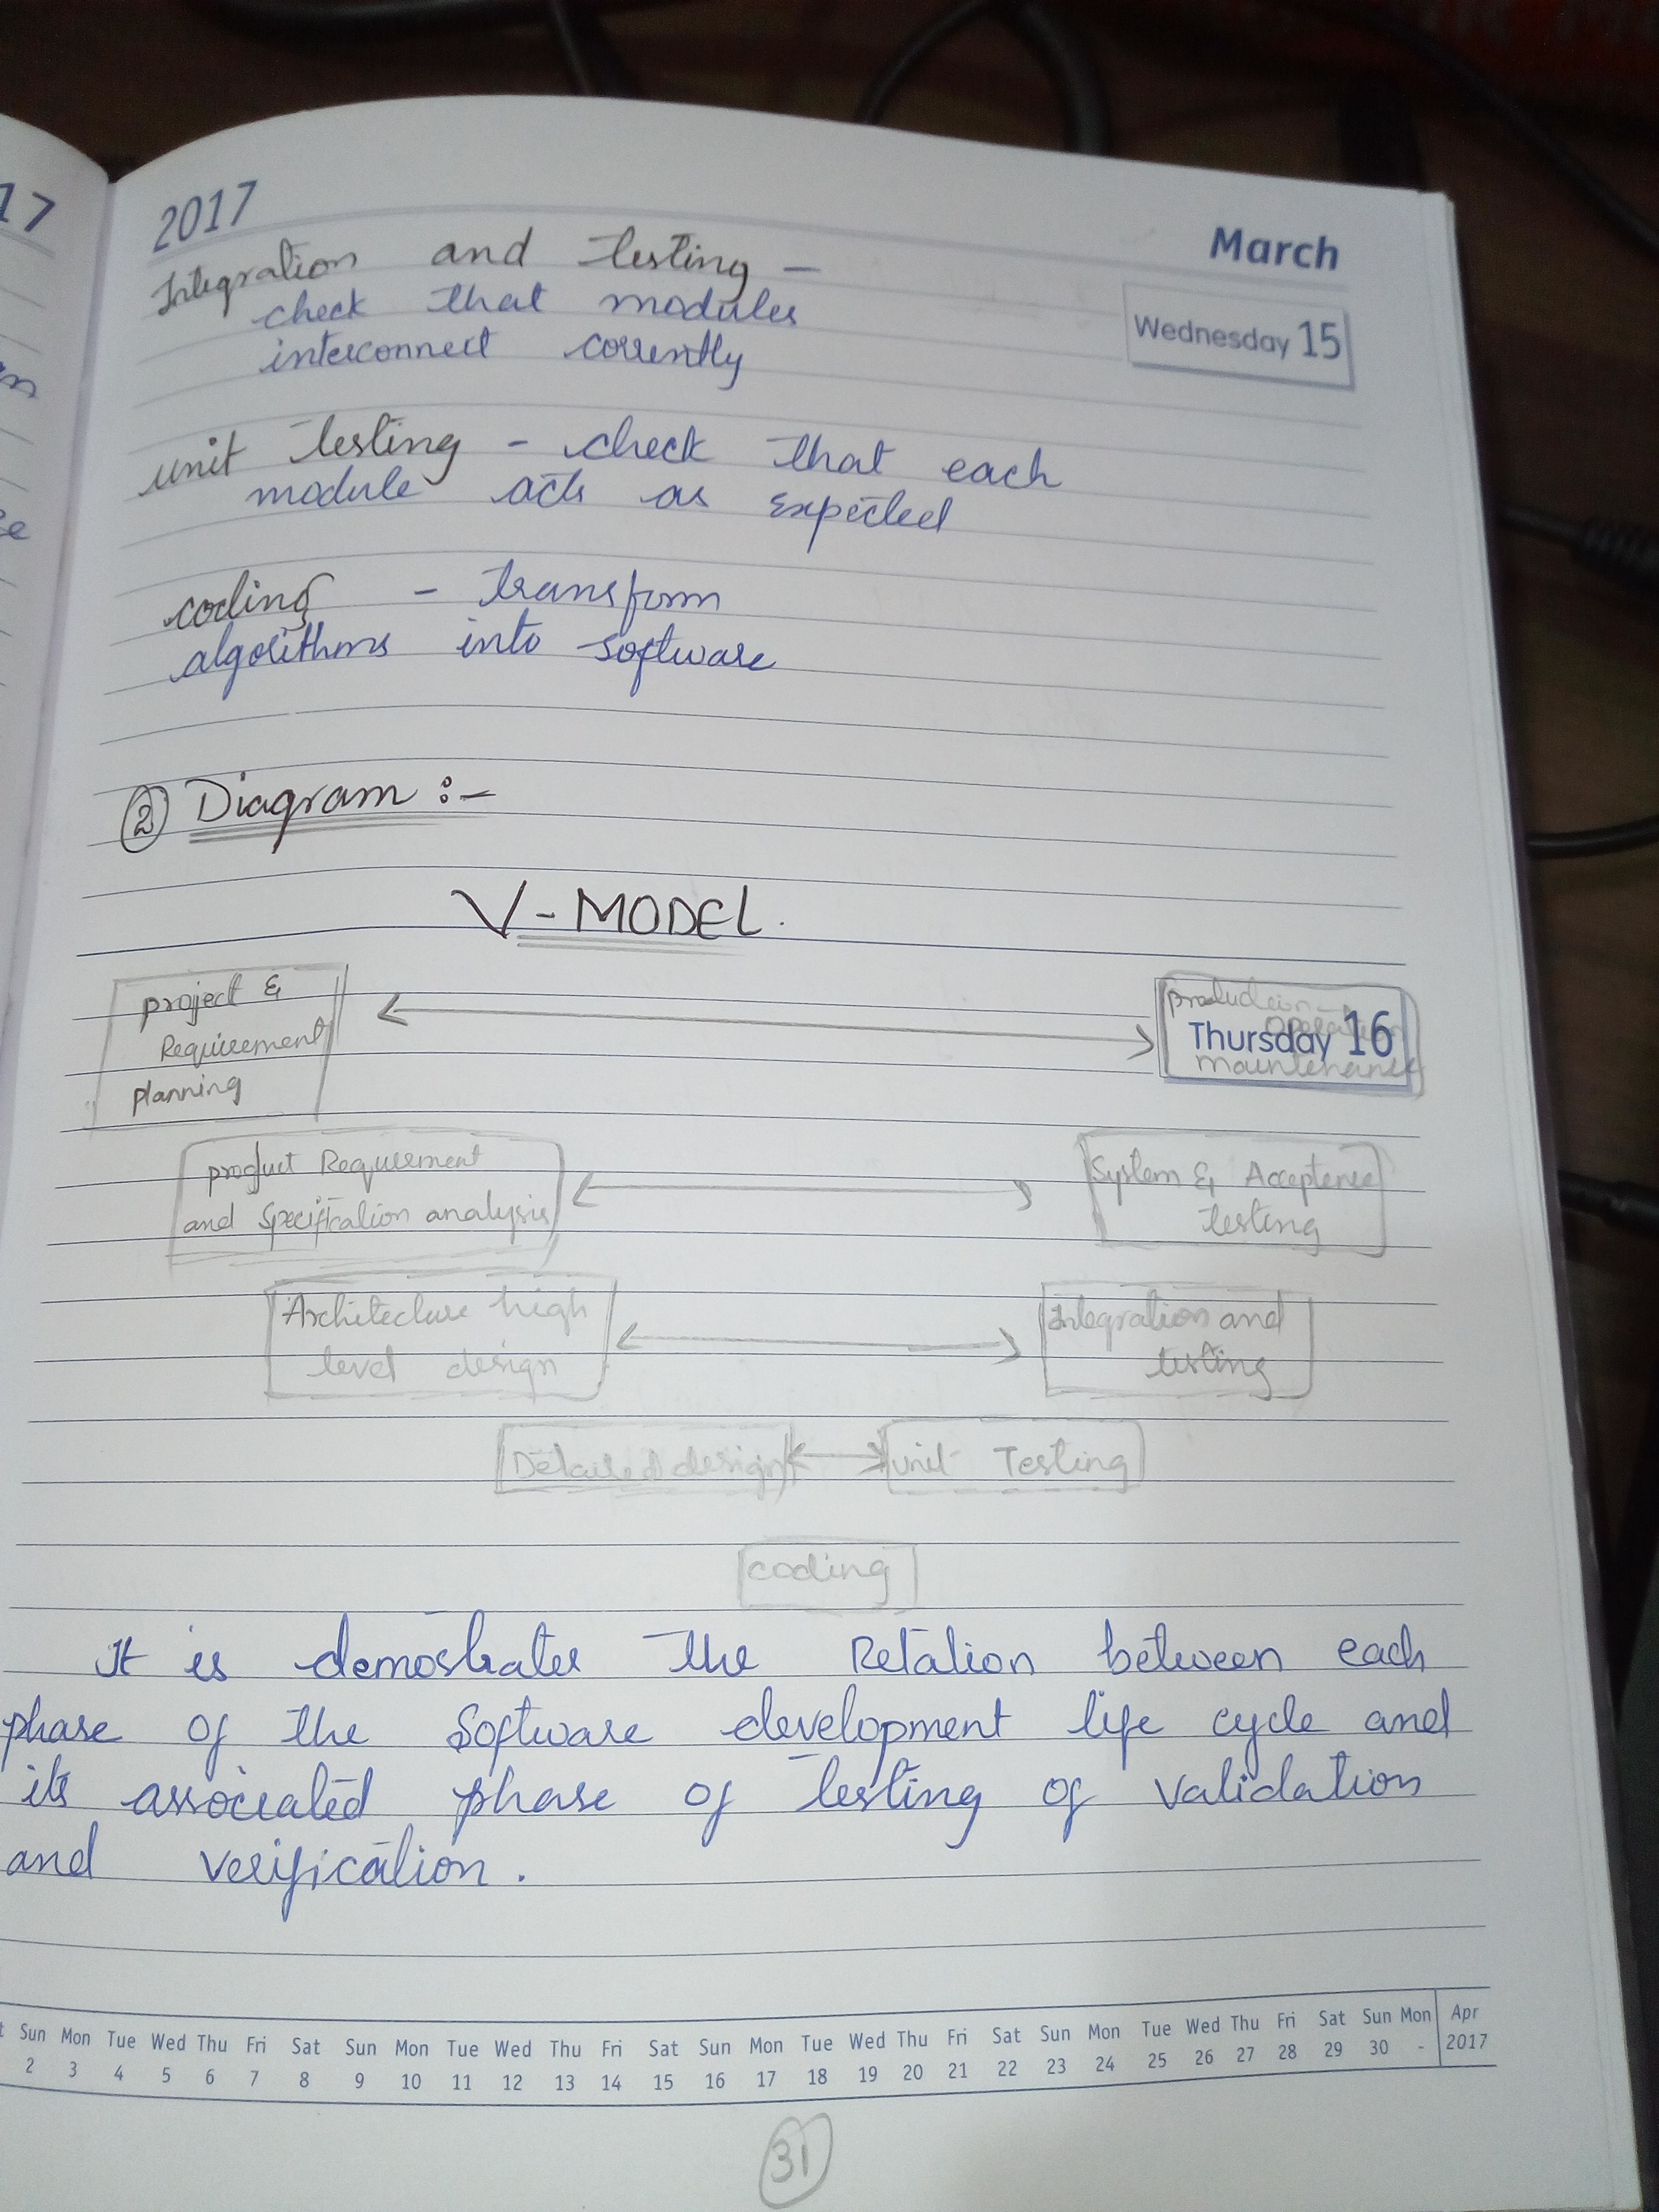 17
2017
March
Wednesday 15
Integration and testing –
check that modules
interconnect corrently
unit testing - check that each
module acts as expected
coding - transform
algorithms into software
② Diagram :-
V-MODEL.
project &
Requirement
planning
production
operation
Thursday 16
maintenance
product Requirement
and Specification analysis
System & Acceptence
testing
Architecture high
level design
Integration and
testing
Detailed design
unit Testing
coding
It is demostrates the Relation between each
phase of the Software development life cycle and
its associated phase of testing of validation
and verification.
Sun Mon Tue Wed Thu Fri Sat Sun Mon Tue Wed Thu Fri Sat Sun Mon Tue Wed Thu Fri Sat Sun Mon Tue Wed Thu Fri Sat Sun Mon Apr
2 3 4 5 6 7 8 9 10 11 12 13 14 15 16 17 18 19 20 21 22 23 24 25 26 27 28 29 30 - 2017
31